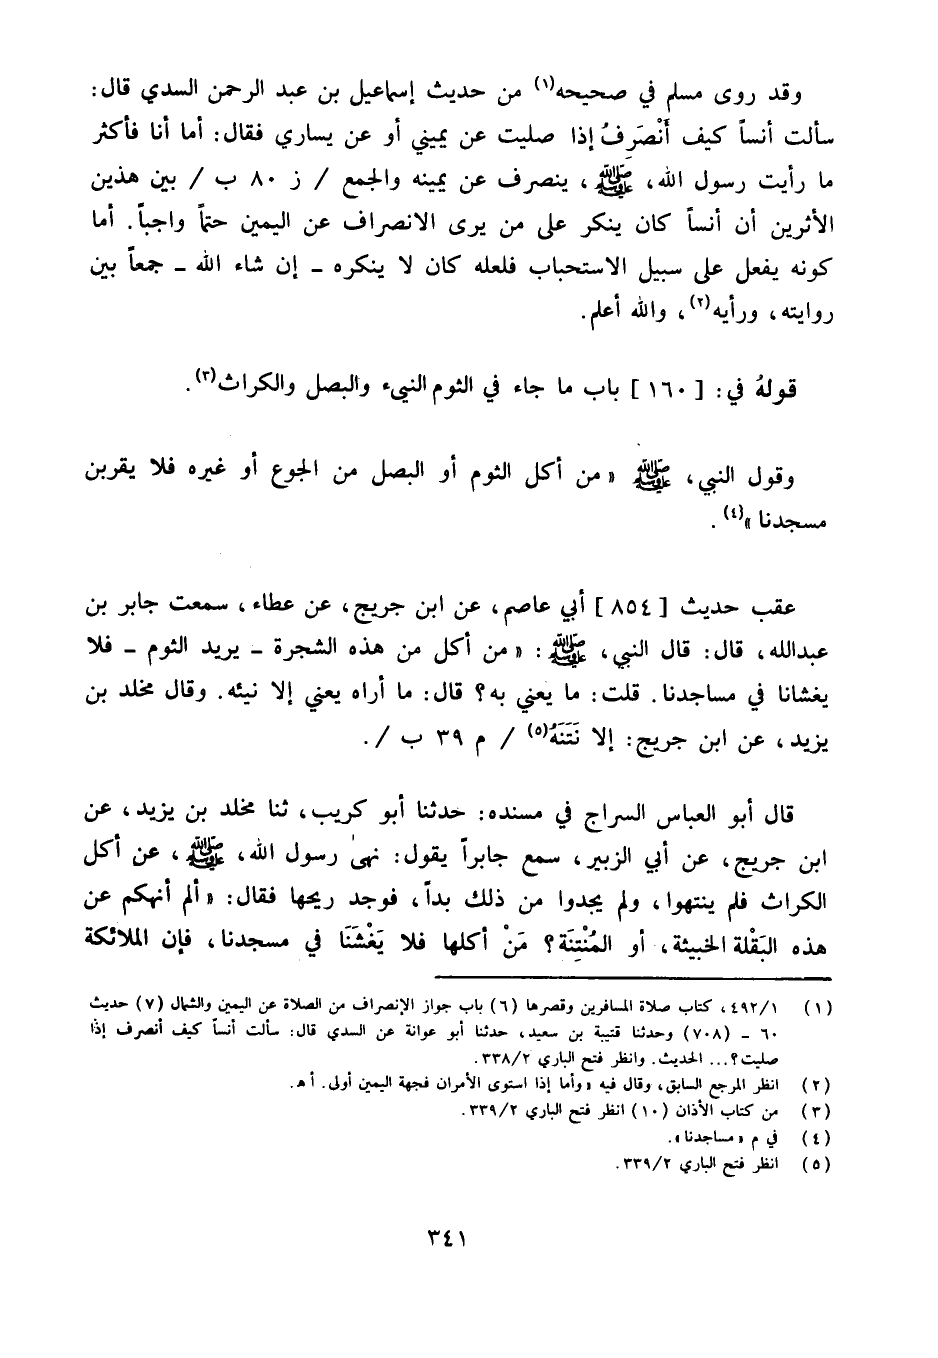 وقد روى مسلم في صحيحه(١) من حديث إسماعيل بن عبد الرحمن السدي قال:
سألت أنساً كيف أَنْصَرِفُ إذا صليت عن يميني أو عن يساري فقال: أما أنا فأكثر
ما رأيت رسول الله، ﷺ، ينصرف عن يمينه والجمع / ز ٨٠ ب / بين هذين
الأثرين أن أنساً كان ينكر على من يرى الانصراف عن اليمين حتماً واجباً. أما
كونه يفعل على سبيل الاستحباب فلعله كان لا ينكره ـ إن شاء الله ـ جمعاً بين
روايته، ورأيه(٢)، والله أعلم.
قولهُ في: [ ١٦٠ ] باب ما جاء في الثوم النيىء والبصل والكراث(٣).
وقول النبي، ﷺ « من أكل الثوم أو البصل من الجوع أو غيره فلا يقربن
مسجدنا »(٤).
عقب حديث [ ٨٥٤ ] أبي عاصم، عن ابن جريج، عن عطاء، سمعت جابر بن
عبدالله، قال: قال النبي، ﷺ: « من أكل من هذه الشجرة ـ يريد الثوم ـ فلا
يغشانا في مساجدنا. قلت: ما يعني به؟ قال: ما أراه يعني إلا نيئه. وقال مخلد بن
يزيد، عن ابن جريج: إلا نَتَنَهُ(٥) / م ٣٩ ب /.
قال أبو العباس السراج في مسنده: حدثنا أبو كريب، ثنا مخلد بن يزيد، عن
ابن جريج، عن أبي الزبير، سمع جابراً يقول: نهىٰ رسول الله، ﷺ، عن أكل
الكراث فلم ينتهوا، ولم يجدوا من ذلك بداً، فوجد ريحها فقال: « ألم أنهكم عن
هذه البَقْلة الخبيثة، أو المُنْتِنَة؟ مَنْ أكلها فلا يَغْشَنَا في مسجدنا، فإن الملائكة
(١) ٤٩٢/١، كتاب صلاة المسافرين وقصرها (٦) باب جواز الإنصراف من الصلاة عن اليمين والشمال (٧) حديث
٦٠ ـ (٧٠٨) وحدثنا قتيبة بن سعيد، حدثنا أبو عوانة عن السدي قال: سألت أنساً كيف أنصرف إذا
صليت؟... الحديث. وانظر فتح الباري ٣٣٨/٢.
(٢) انظر المرجع السابق، وقال فيه «وأما إذا استوى الأمران فجهة اليمين أولى. أ هـ.
(٣) من كتاب الأذان (١٠) انظر فتح الباري ٣٣٩/٢.
(٤) في م «مساجدنا».
(٥) انظر فتح الباري ٣٣٩/٢.
٣٤١